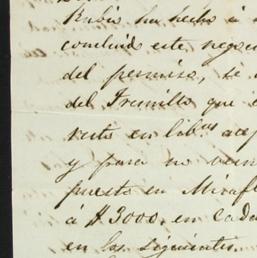 Rubio ha hecho á
concluid este negoc
del permiso, se
del Trunillo que
resto en lib.as acep
y para no
puesto en Miraf
á $3000. en cada
en los siguientes